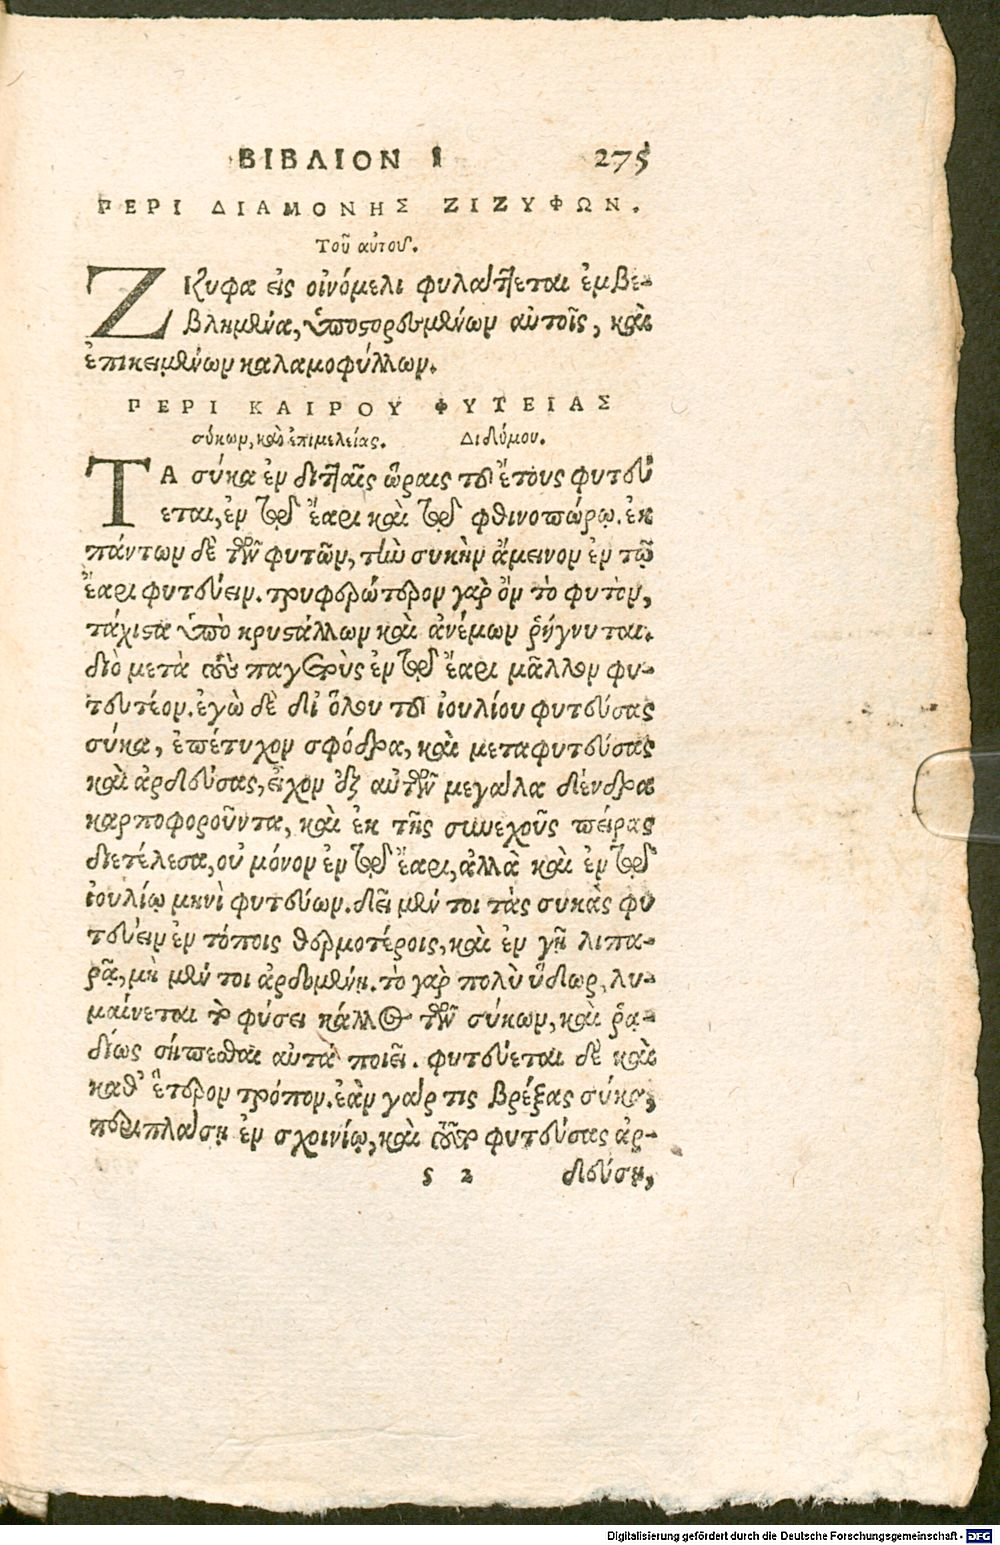 ΒΙΒΛΙΟΝ Ι 275
ΠΕΡΙ ΔΙΑΜΟΝΗΣ ΖΙΖΥΦΩΝ.
Τοῦ αὐτου.
ΖΙζυφα εἰς οἰνόμελι φυλάττεται ἐμβε-
βλημένα, ὑποστορουμένων αὐτοῖς, καὶ
ἐπικειμένων καλαμοφύλλων.
ΠΕΡΙ ΚΑΙΡΟΥ ΦΥΤΕΙΑΣ
σύκων, καὶ ἐπιμελείας. Διδύμου.
ΤΑ σύκα ἐν διτταῖς ὥραις τοῦ ἔτους φυτεύ
εται, ἐν τῷ ἔαρι καὶ τῷ φθινοπώρῳ. ἐκ
πάντων δὲ τῶν φυτῶν, τὴν συκὴν ἄμεινον ἐν τῷ
ἔαρι φυτεύειν. τρυφερώτερον γὰρ ὂν τὸ φυτὸν,
τάχιστα ὑπὸ κρυστάλλων καὶ ἀνέμων ῥήγνυται.
διὸ μετὰ τοὺς παγετοὺς ἐν τῷ ἔαρι μᾶλλον φυ-
τευτέον. ἐγὼ δὲ δι' ὅλου τοῦ ἰουλίου φυτεύσας
σύκα, ἐπέτυχον σφόδρα, καὶ μεταφυτεύσας
καὶ ἀρδεύσας, εἶχον ἐξ αὐτῶν μεγάλα δένδρα
καρποφοροῦντα, καὶ ἐκ τῆς συνεχοῦς πείρας
διετέλεσα, οὐ μόνον ἐν τῷ ἔαρι, ἀλλὰ καὶ ἐν τῷ
ἰουλίῳ μηνὶ φυτεύων. δεῖ μέν τοι τὰς συκὰς φυ
τεύειν ἐν τόποις θερμοτέροις, καὶ ἐν γῇ λιπα-
ρᾷ, μὴ μέν τοι ἀρδομένῃ. τὸ γὰρ πολὺ ὕδωρ, λυ-
μαίνεται τὸ φύσει κάλλος τῶν σύκων, καὶ ῥᾳ-
δίως σήπεσθαι αὐτὰ ποιεῖ. φυτεύεται δὲ καὶ
καθ' ἕτερον τρόπον. ἐὰν γάρ τις βρέξας σύκα,
περιπλάσῃ ἐν σχοινίῳ, καὶ τοῦτο φυτεύσας ἀρ-
ς 2 δεύσῃ,
Digitalisierung gefördert durch die Deutsche Forschungsgemeinschaft - DFG